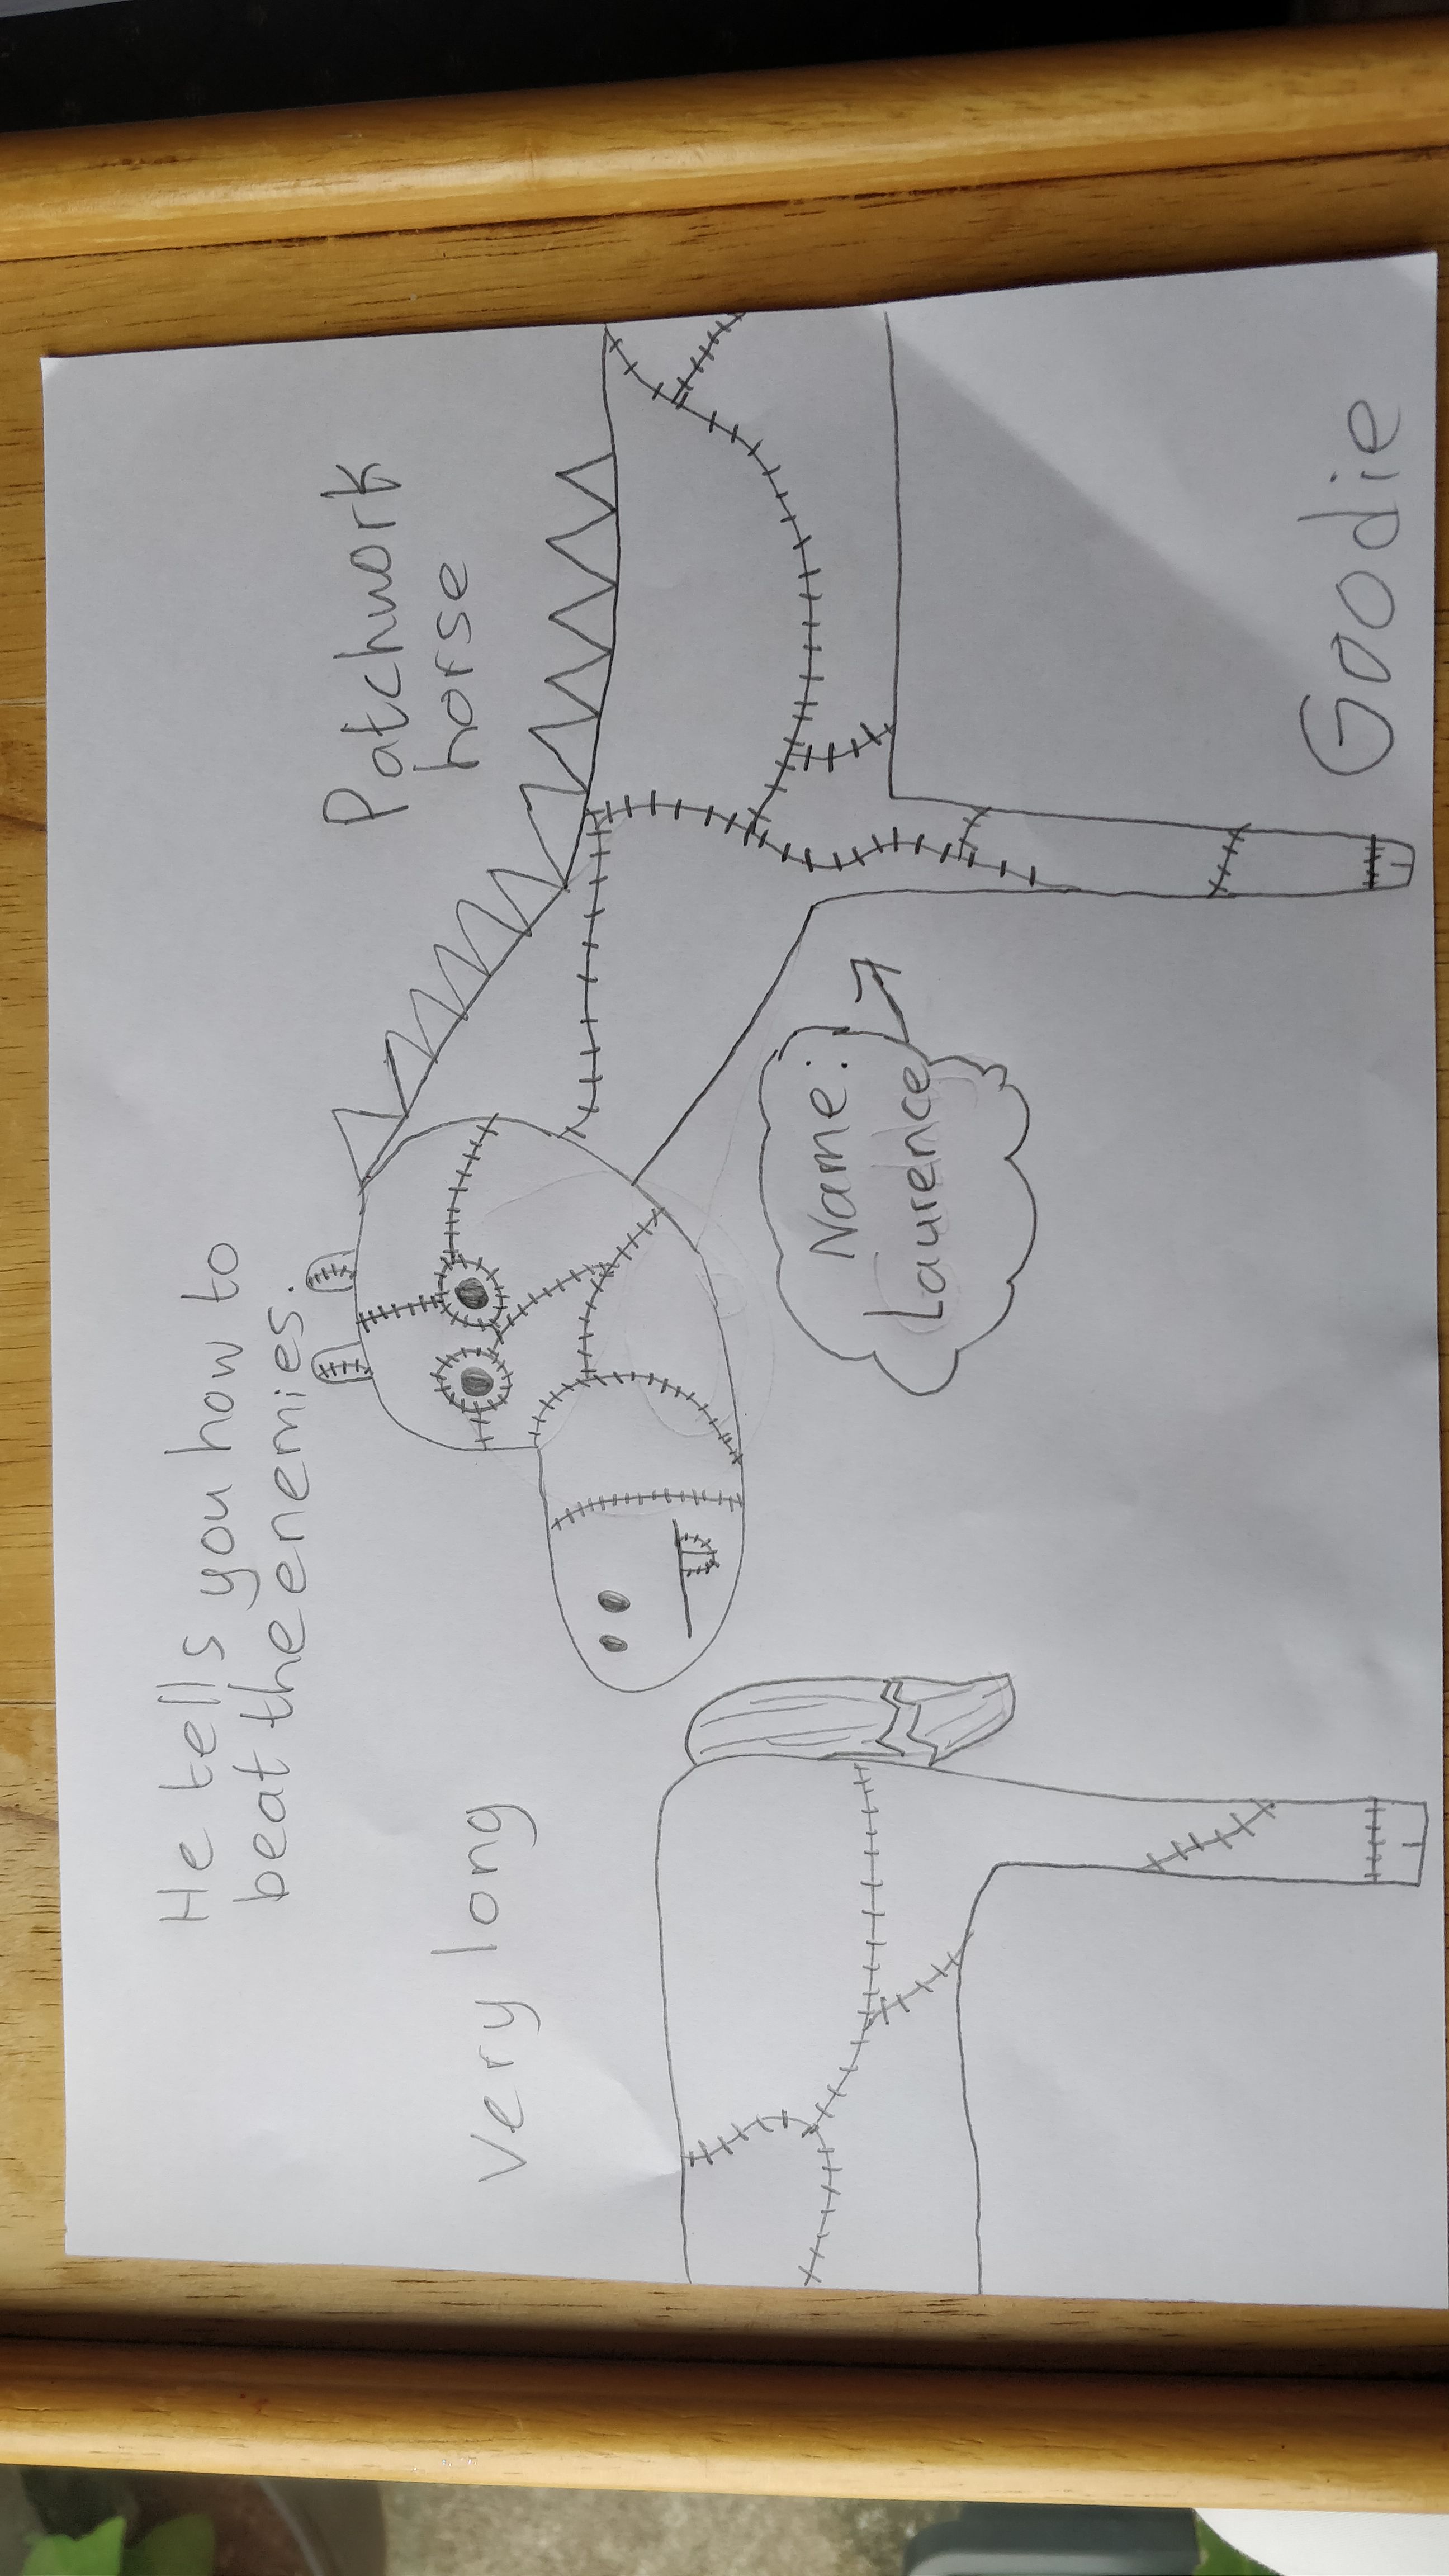 He tells you how to
beat the enemies.
Very long
Patchwork
horse
Name:
Laurence
Goodie